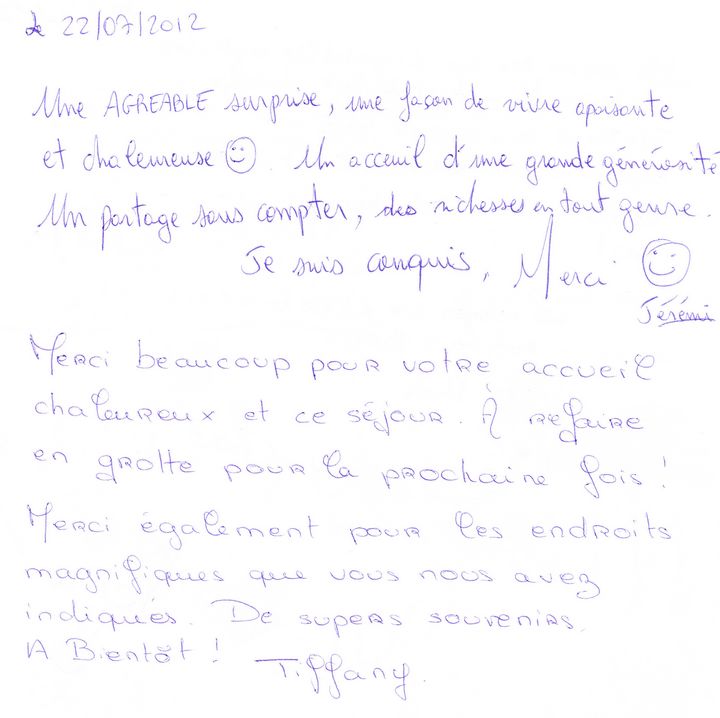 Le 22/07/2012
Une AGREABLE surprise, une façon de vivre apaisante
et chaleureuse ☺. Un acceuil d'une grande générosité
Un partage sans compter, des richesses en tout genre.
Je suis conquis, Merci ☺
Jérémi
Merci beaucoup pour votre accueil
chaleureux et ce séjour. À refaire
en grotte pour la prochaine fois !
Merci également pour les endroits
magnifiques que vous nous avez
indiqués. De supers souvenirs.
A Bientôt !
Tiffany.